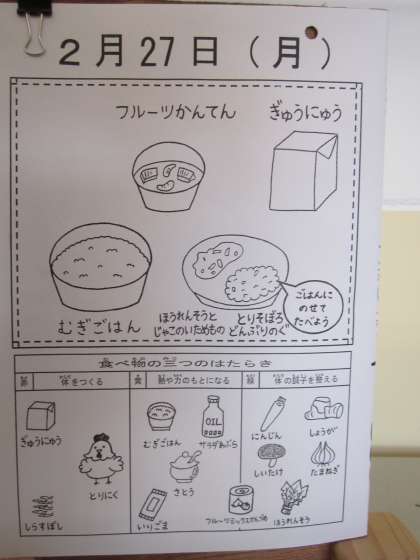 2月27日(月)
フルーツかんてん
ぎゅうにゅう
むぎごはん
ほうれんそうと
じゃこのいためもの
とりそぼろ
どんぶりのぐ
ごはんに
のせて
たべよう
食べ物の三つのはたらき
赤 体をつくる
黄 熱や力のもとになる
緑 体の調子を整える
ぎゅうにゅう
とりにく
しらすぼし
むぎごはん
OIL
サラダあぶら
さとう
いりごま
にんじん
しょうが
しいたけ
たまねぎ
フルーツミックスかんづめ
ほうれんそう